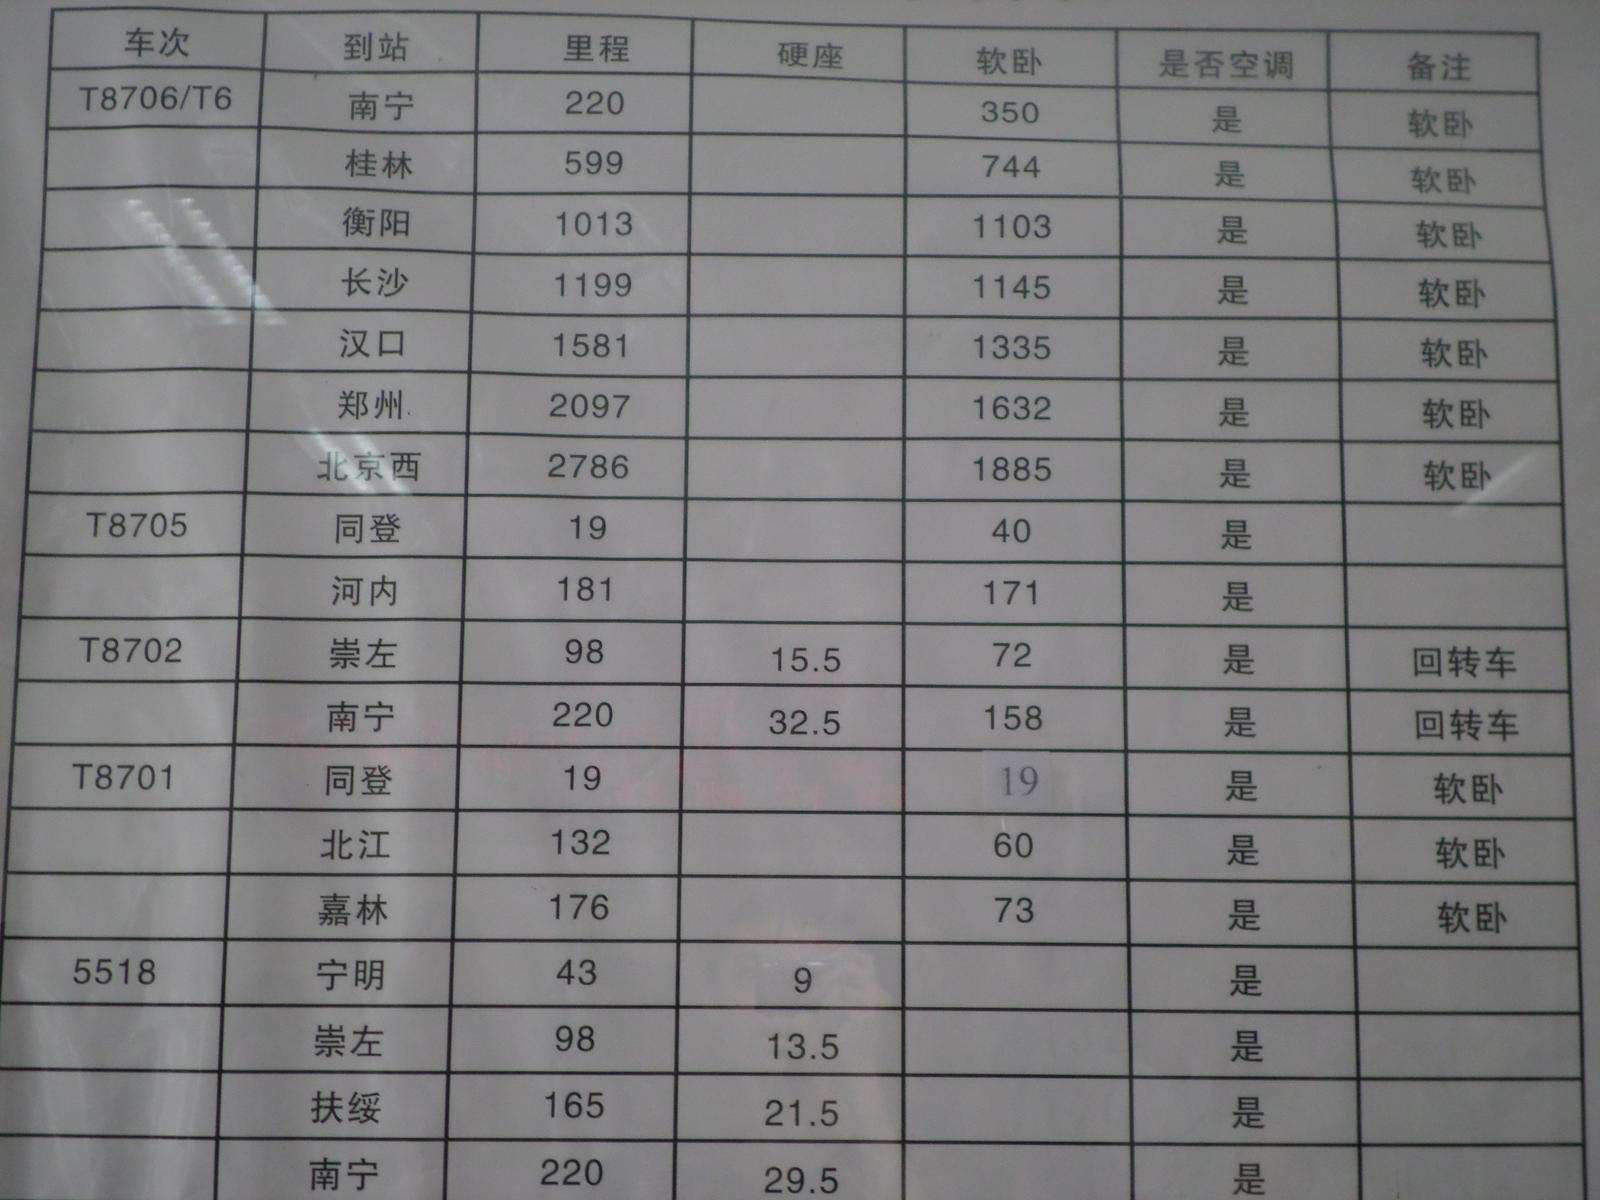 车次 到站 里程 硬座 软卧 是否空调 备注
T8706/T6 南宁 220 350 是 软卧
桂林 599 744 是 软卧
衡阳 1013 1103 是 软卧
长沙 1199 1145 是 软卧
汉口 1581 1335 是 软卧
郑州 2097 1632 是 软卧
北京西 2786 1885 是 软卧
T8705 同登 19 40 是
河内 181 171 是
T8702 崇左 98 15.5 72 是 回转车
南宁 220 32.5 158 是 回转车
T8701 同登 19 19 是 软卧
北江 132 60 是 软卧
嘉林 176 73 是 软卧
5518 宁明 43 9 是
崇左 98 13.5 是
扶绥 165 21.5 是
南宁 220 29.5 是